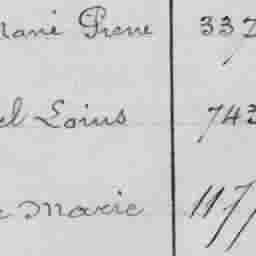 Marie Pierre 337
el Louis 743
e Marie 1177